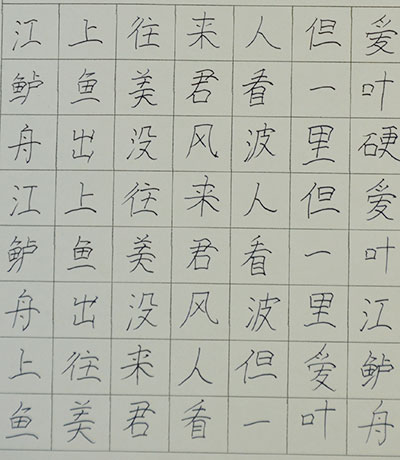 江上往来人但爱
鲈鱼美君看一叶
舟出没风波里硬
江上往来人但爱
鲈鱼美君看一叶
舟出没风波里江
上往来人但爱鲈
鱼美君看一叶舟